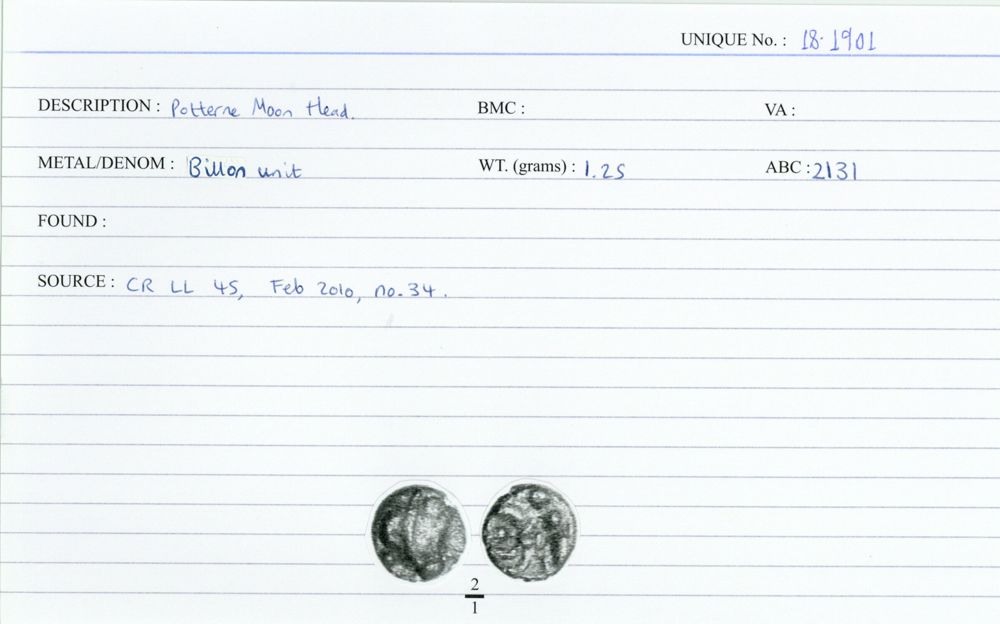 UNIQUE No. : 18.1901
DESCRIPTION : Potterne Moon Head. BMC : VA :
METAL/DENOM : Billon unit WT. (grams) : 1.25 ABC : 2131
FOUND :
SOURCE : CR LL 45, Feb 2010, no. 34.
2
1